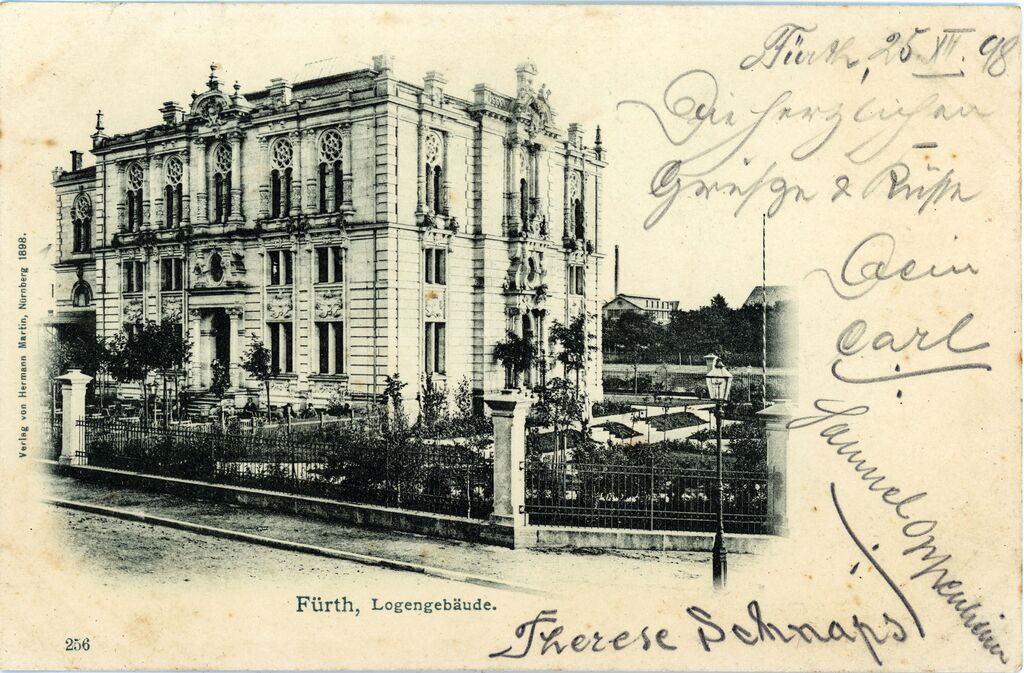 Fürth, 25. XII. 98
Die herzlichen
Grüße & Küsse
Dein
Carl
Samuel Oppenheimer
Therese Schnaps
Verlag von Hermann Martin, Nürnberg 1898.
Fürth, Logengebäude.
256